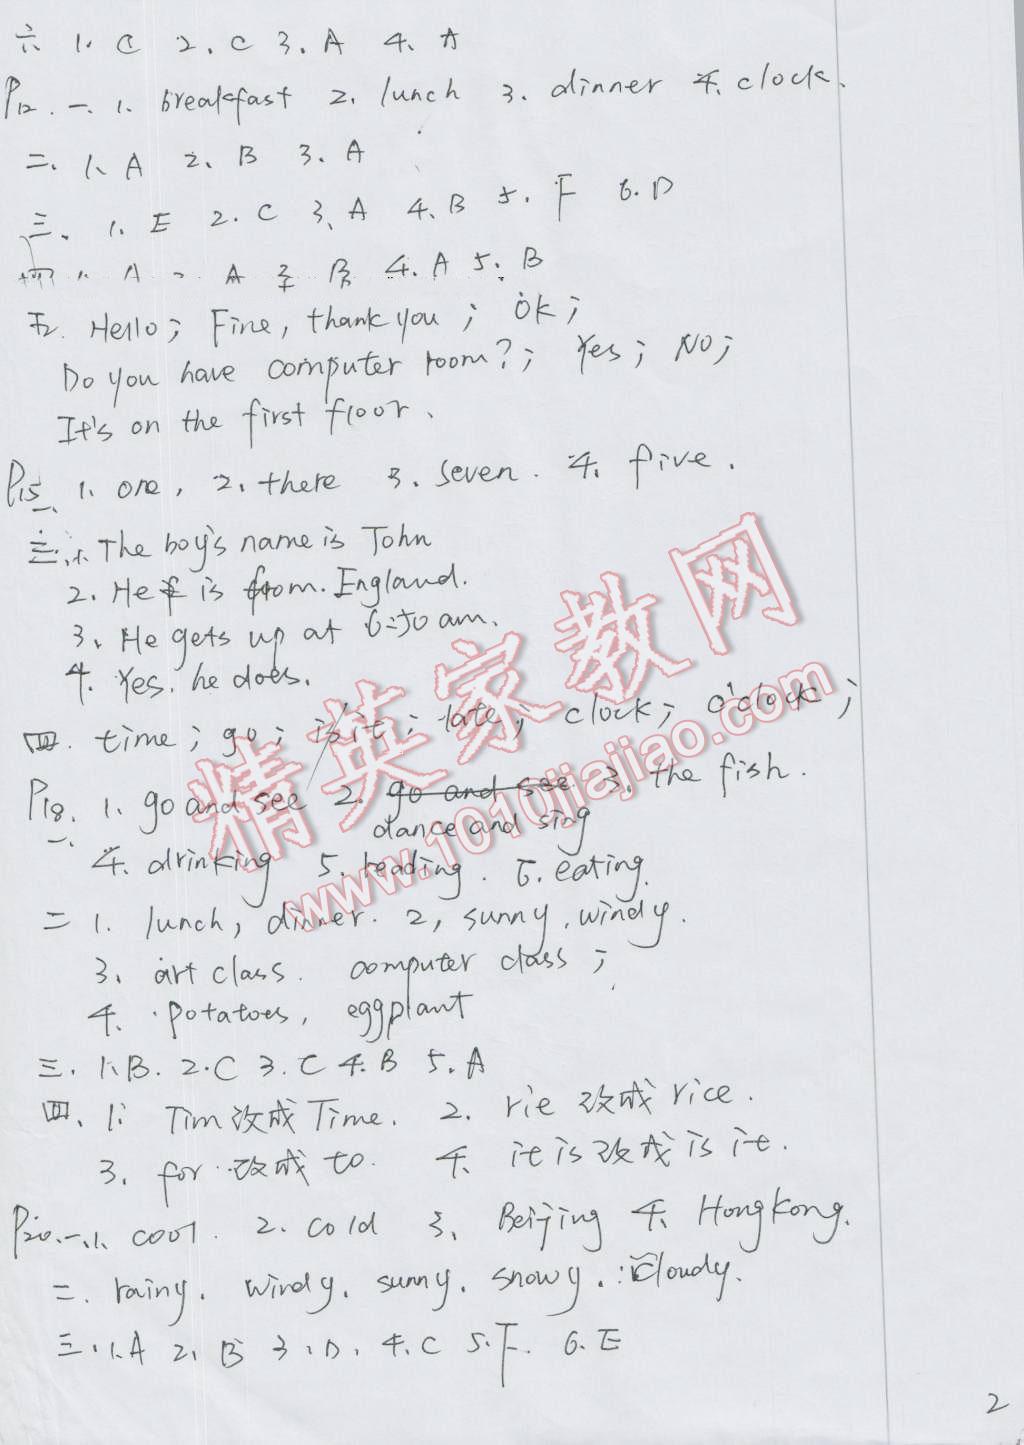 六 1. C 2. C 3. A 4. A
P12. 一. 1. breakfast 2. lunch 3. dinner 4. clock.
二. 1. A 2. B 3. A
三. 1. E 2. C 3. A 4. B 5. F 6. D
四 1. A 2 A 3 B 4. A 5. B
五. Hello; Fine, thank you; ok;
Do you have computer room?; Yes; No;
It's on the first floor.
P15 一、 1. one, 2. there 3. seven. 4. five.
三. 1. The boy's name is John
2. He is from. England.
3. He gets up at 6:50 am.
4. Yes. he does.
四. time; go; is it; late; clock; o'clock;
P18. 一、 1. go and see 2. go and see 3. the fish.
dance and sing
4. drinking 5. reading. 6. eating.
二 1. lunch, dinner. 2, sunny, windy.
3. art class. computer class;
4. potatoes, eggplant
三. 1. B. 2. C 3. C 4. B 5. A
四. 1. Tim改成Time. 2. rie 改成 rice.
3. for 改成 to. 4. it is 改成 is it.
P20. 一. 1. cool. 2. cold 3. Beijing 4. HongKong.
二. rainy. windy. sunny. snowy. cloudy.
三. 1. A 2. B 3. D. 4. C 5. F. 6. E
2
精英家教网
www.1010jiajiao.com